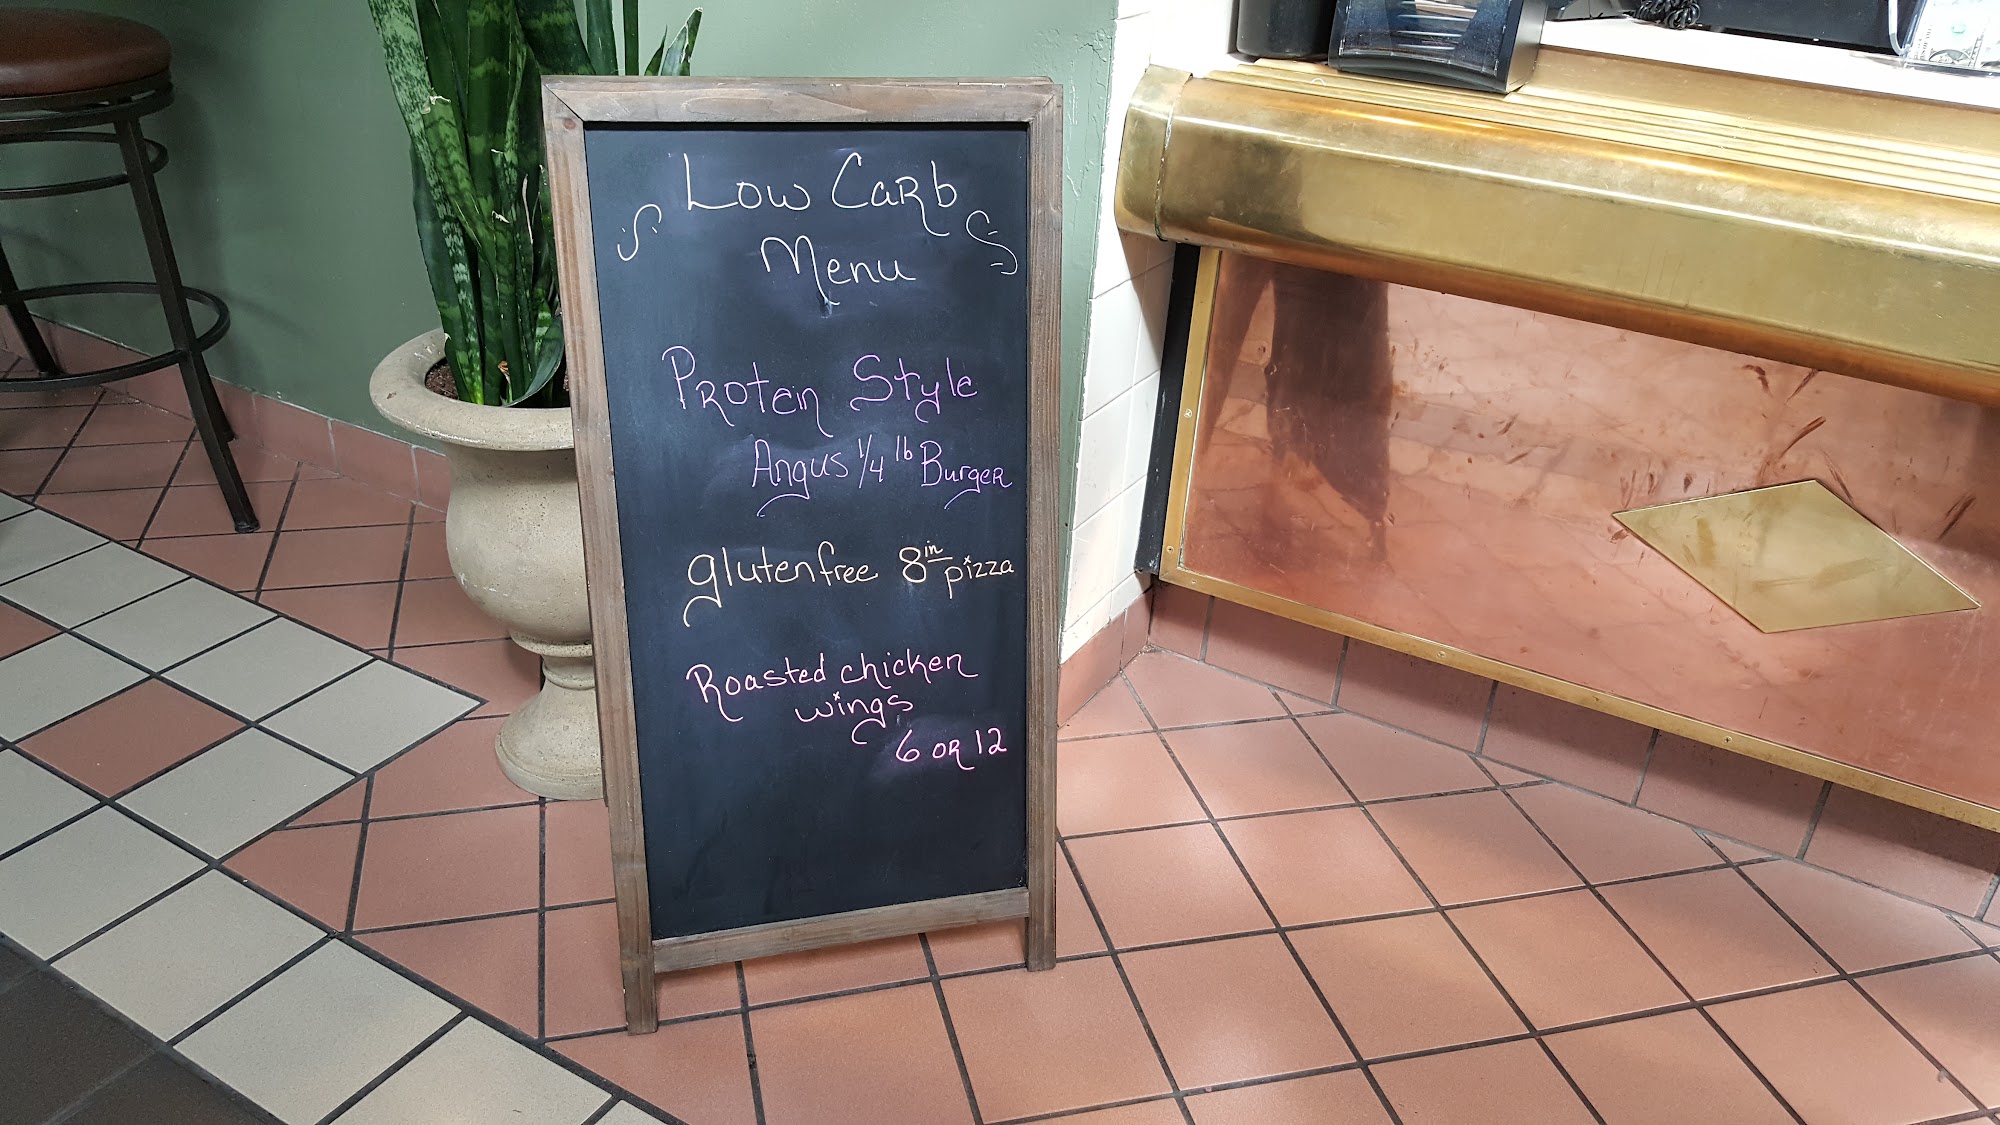 Low Carb
Menu
Protein Style
Angus 1/4 lb Burger
glutenfree 8in pizza
Roasted chicken
wings
6 OR 12